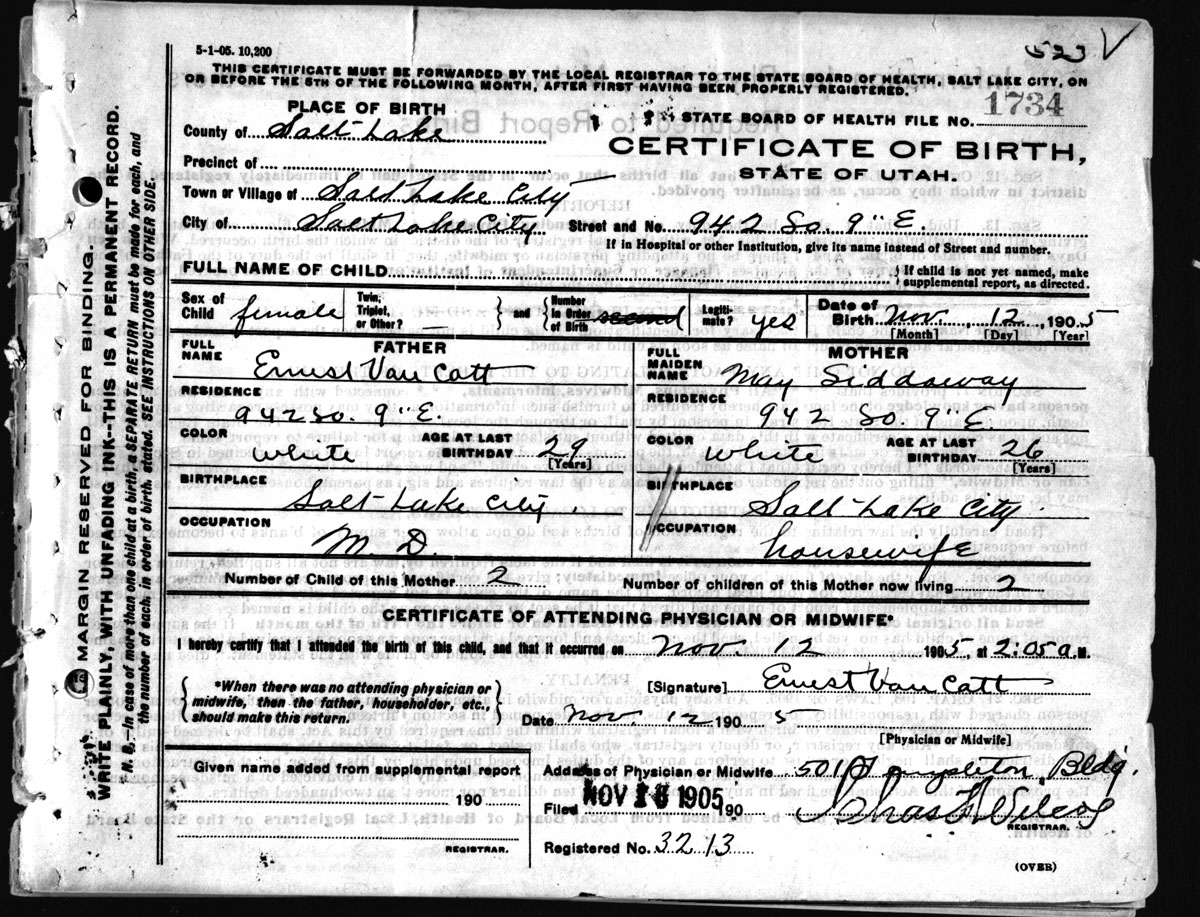 5-1-05. 10,200
523 V
THIS CERTIFICATE MUST BE FORWARDED BY THE LOCAL REGISTRAR TO THE STATE BOARD OF HEALTH, SALT LAKE CITY, ON
OR BEFORE THE 5TH OF THE FOLLOWING MONTH, AFTER FIRST HAVING BEEN PROPERLY REGISTERED.
PLACE OF BIRTH
STATE BOARD OF HEALTH FILE NO. 1734
County of Salt Lake
CERTIFICATE OF BIRTH,
STATE OF UTAH.
Precinct of
Town or Village of Salt Lake City
City of Salt Lake City Street and No. 942 So. 9" E.
If in Hospital or other Institution, give its name instead of Street and number.
FULL NAME OF CHILD
{ If child is not yet named, make
supplemental report, as directed.
Sex of Child female Twin, Triplet, or Other? — } and { Number in Order of Birth second Legiti- mate? yes Date of Birth Nov. 12, 1905
[Month] [Day] [Year]
FATHER MOTHER
FULL NAME Ernest Van Cott FULL MAIDEN NAME May Siddoway
RESIDENCE RESIDENCE
942 So. 9" E. 942 So. 9" E.
COLOR white AGE AT LAST BIRTHDAY 29 [Years] COLOR white AGE AT LAST BIRTHDAY 26 [Years]
BIRTHPLACE BIRTHPLACE
Salt Lake City. Salt Lake City.
OCCUPATION OCCUPATION
M. D. housewife
Number of Child of this Mother 2 Number of children of this Mother now living 2
CERTIFICATE OF ATTENDING PHYSICIAN OR MIDWIFE*
I hereby certify that I attended the birth of this child, and that it occurred on Nov. 12 1905, at 2:05 a.M.
{ *When there was no attending physician or
midwife, then the father, householder, etc.,
should make this return. }
[Signature] Ernest Van Cott
Date Nov. 12 1905
[Physician or Midwife]
Given name added from supplemental report
190
REGISTRAR.
Address of Physician or Midwife 501 Templeton Bldg.
Filed NOV 16 1905 190
REGISTRAR.
Registered No. 3213
(OVER)
MARGIN RESERVED FOR BINDING.
WRITE PLAINLY, WITH UNFADING INK--THIS IS A PERMANENT RECORD.
N. B.--In case of more than one child at a birth, a SEPARATE RETURN must be made for each, and
the number of each, in order of birth, stated. SEE INSTRUCTIONS ON OTHER SIDE.